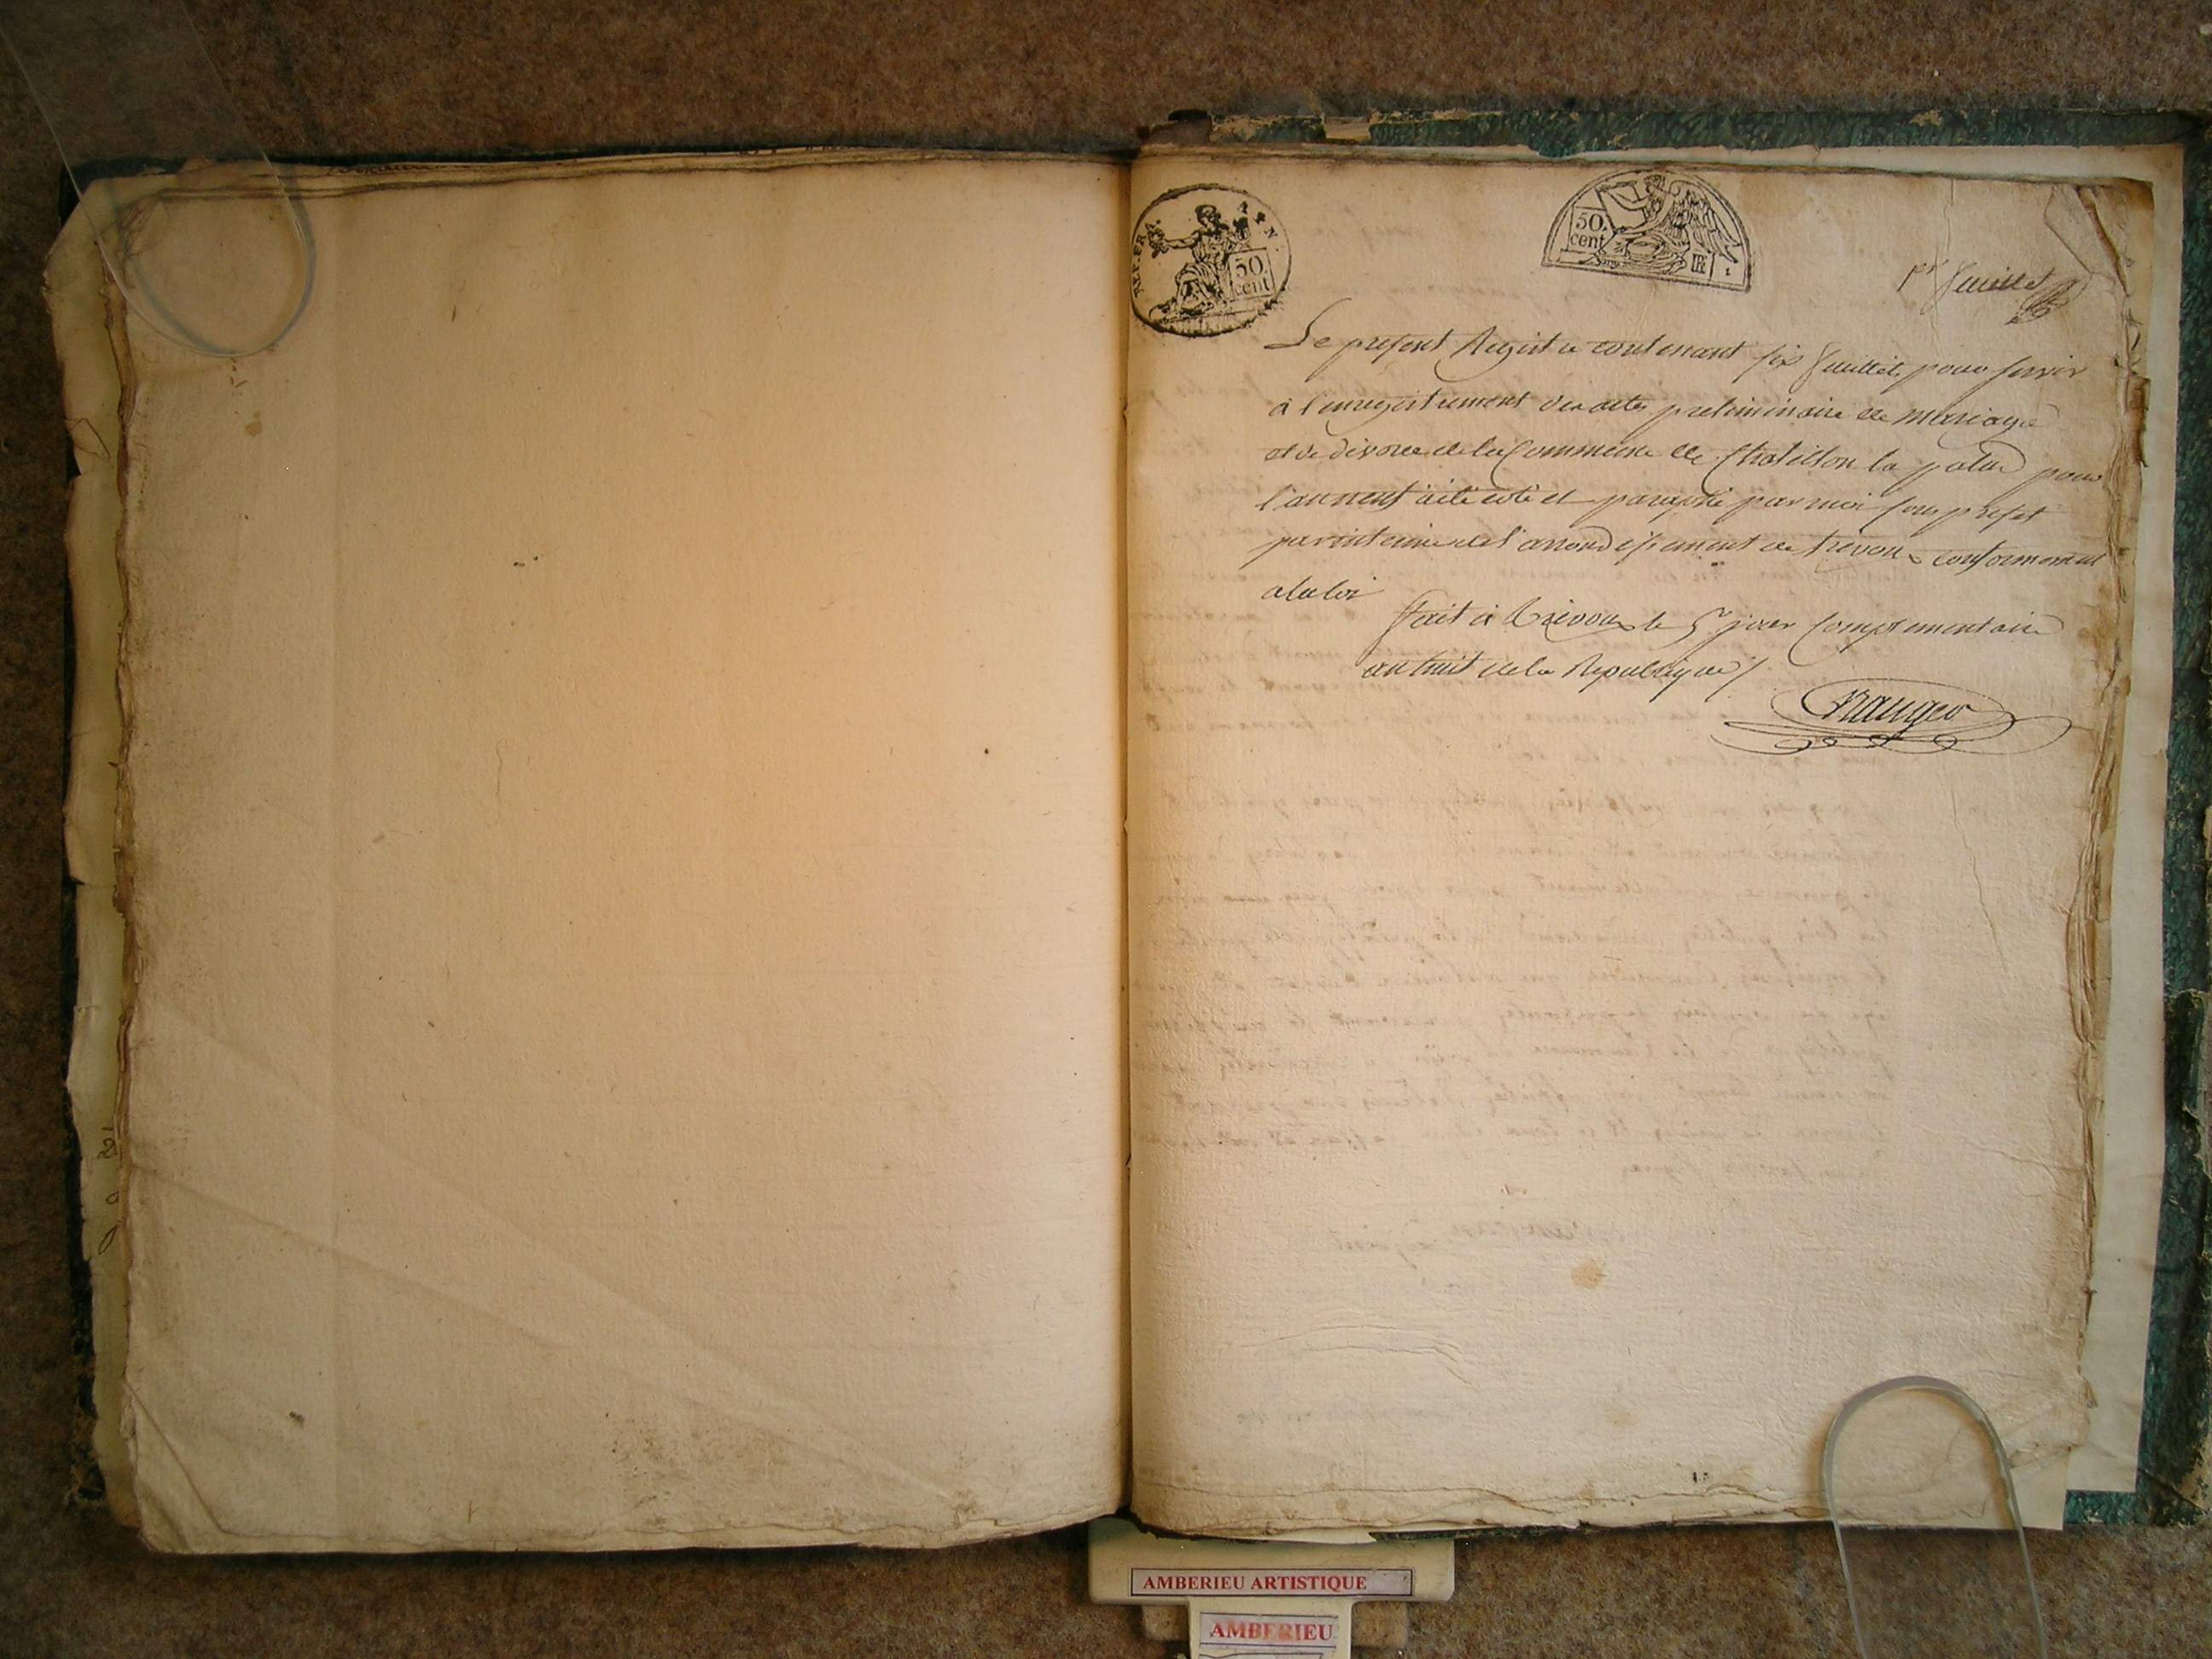 REP. FRA.
50
cent
50.
cent
RF
pr feuillet
Le present Registre contenant six feuillets pour servir
à l'enregistrement des actes preliminaire de mariage
et de divorce de la Commune de Chatillon la palud pour
l'an neuf à été coté et paraphé par moi sous prefet
provisoire de l'arrondissement de trevoux conformement
a la loi
fait à trevoux le 5e jour complementaire
an huit de la Republique
AMBERIEU ARTISTIQUE
AMBERIEU